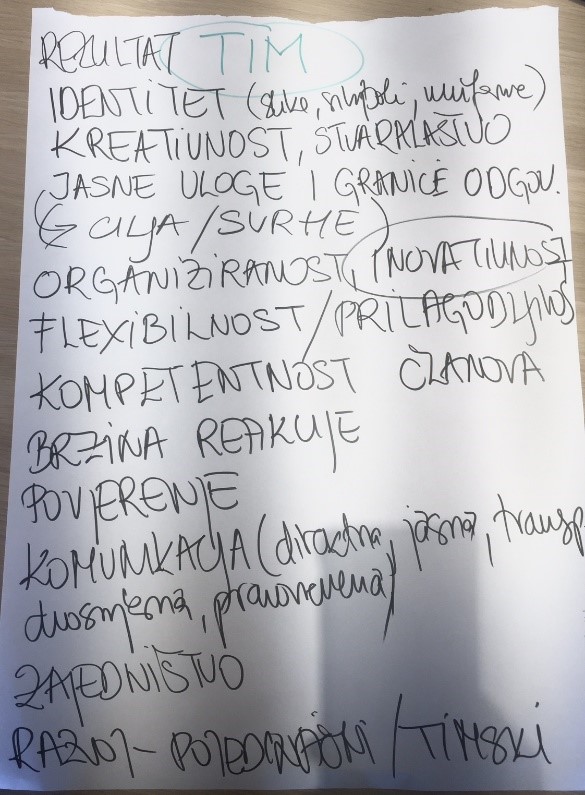 REZULTAT TIM
IDENTITET (slike, simboli, uniforme)
KREATIVNOST, STVARALAŠTVO
JASNE ULOGE I GRANICE ODGOV.
(→ CILJA / SVRHE)
ORGANIZIRANOST, INOVATIVNOST
FLEXIBILNOST / PRILAGODLJIVOS
KOMPETENTNOST ČLANOVA
BRZINA REAKCIJE
POVJERENJE
KOMUNIKACIJA (direktna, jasna, transp
dvosmjesna, pravovremena)
ZAJEDNIŠTVO
RAZVOJ - POJEDINAČNI / TIMSKI